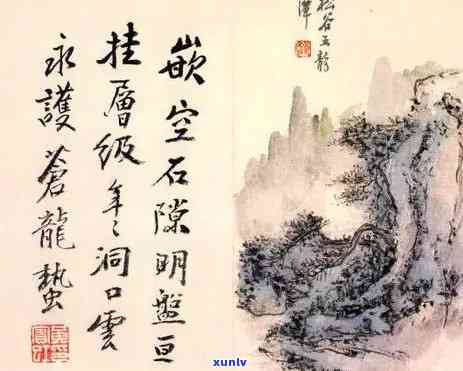 松谷五龍
潭
嵌空石隙明盤亘
挂層級年〻洞口雲
永護蒼龍蟄
xunlv